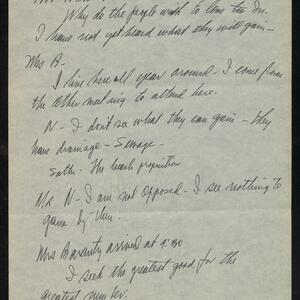 Why do the people wish to
I have not yet heard what they will gain -
Mrs B -
I live here all year around - I come from
the other meeting to attend here.
N - I don't see what they can gain - they
have drainage - Sewage -
The beach proposition
Mr N - I am not opposed - I see nothing to
gain by
Mrs arrived at 9:30
I seek the greatest good for the
greatest number.